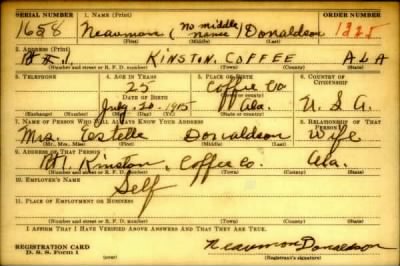 SERIAL NUMBER 1. NAME (Print) ORDER NUMBER
1658 Neavmon (No middle name) Donaldson 1225
(First) (Middle) (Last)
2. ADDRESS (Print)
Rt #1 KINSTON, COFFEE ALA
(Number and street or R. F. D. number) (Town) (County) (State)
3. TELEPHONE 4. AGE IN YEARS 5. PLACE OF BIRTH 6. COUNTRY OF CITIZENSHIP
25 Coffee Co
DATE OF BIRTH (Town or county)
July 20 - 1915 Ala. U. S. A.
(Exchange) (Number) (Mo.) (Day) (Yr.) (State or country)
7. NAME OF PERSON WHO WILL ALWAYS KNOW YOUR ADDRESS 8. RELATIONSHIP OF THAT PERSON
Mrs. Estelle Donaldson Wife
(Mr., Mrs., Miss) (First) (Middle) (Last)
9. ADDRESS OF THAT PERSON
Rt 1. Kinston, Coffee Co. Ala.
(Number and street or R. F. D. number) (Town) (County) (State)
10. EMPLOYER'S NAME
Self
11. PLACE OF EMPLOYMENT OR BUSINESS
(Number and street or R. F. D. number) (Town) (County) (State)
I AFFIRM THAT I HAVE VERIFIED ABOVE ANSWERS AND THAT THEY ARE TRUE.
REGISTRATION CARD
D. S. S. Form 1
Neavmon Donaldson
(Registrant's signature)